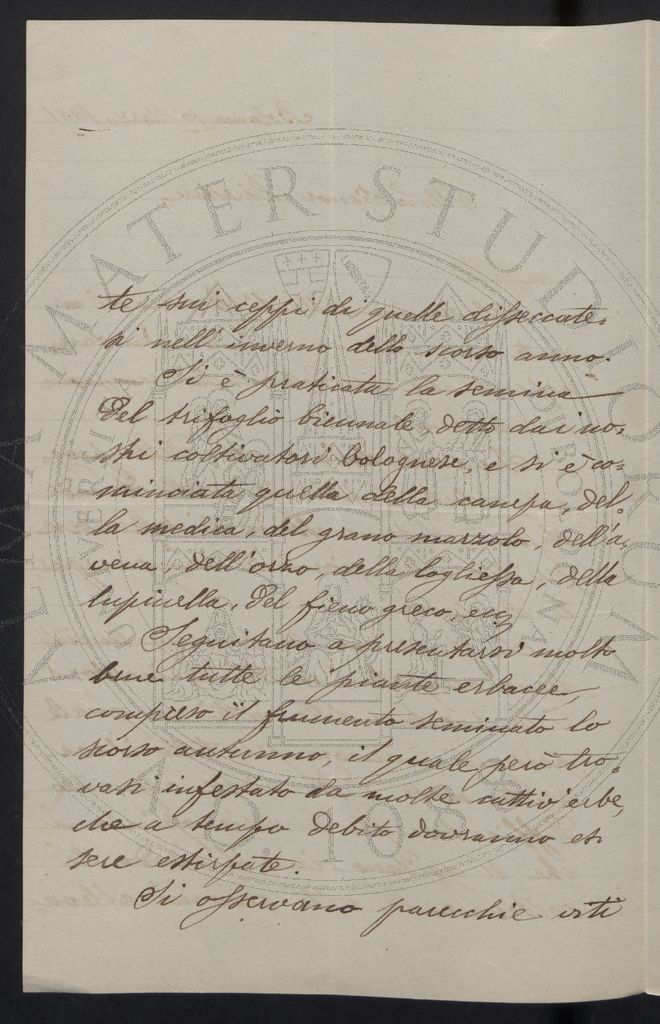 te sui ceppi di quelle disseccate-
si nell'inverno dello scorso anno.
Si è praticata la semina
del trifoglio biennale, detto dai no-
stri coltivatori bolognese, e si è co-
minciata quella della canepa, del-
la medica, del grano marzolo, dell'a-
vena, dell'orzo, della logliessa, della
lupinella, del fieno greco, ecc.
Seguitano a presentarsi molto
bene tutte le piante erbacee,
compreso il frumento seminato lo
scorso autunno, il quale però tro-
vasi infestato da molte cattiv'erbe,
che a tempo debito dovranno es-
sere estirpate.
Si osservano parecchie viti